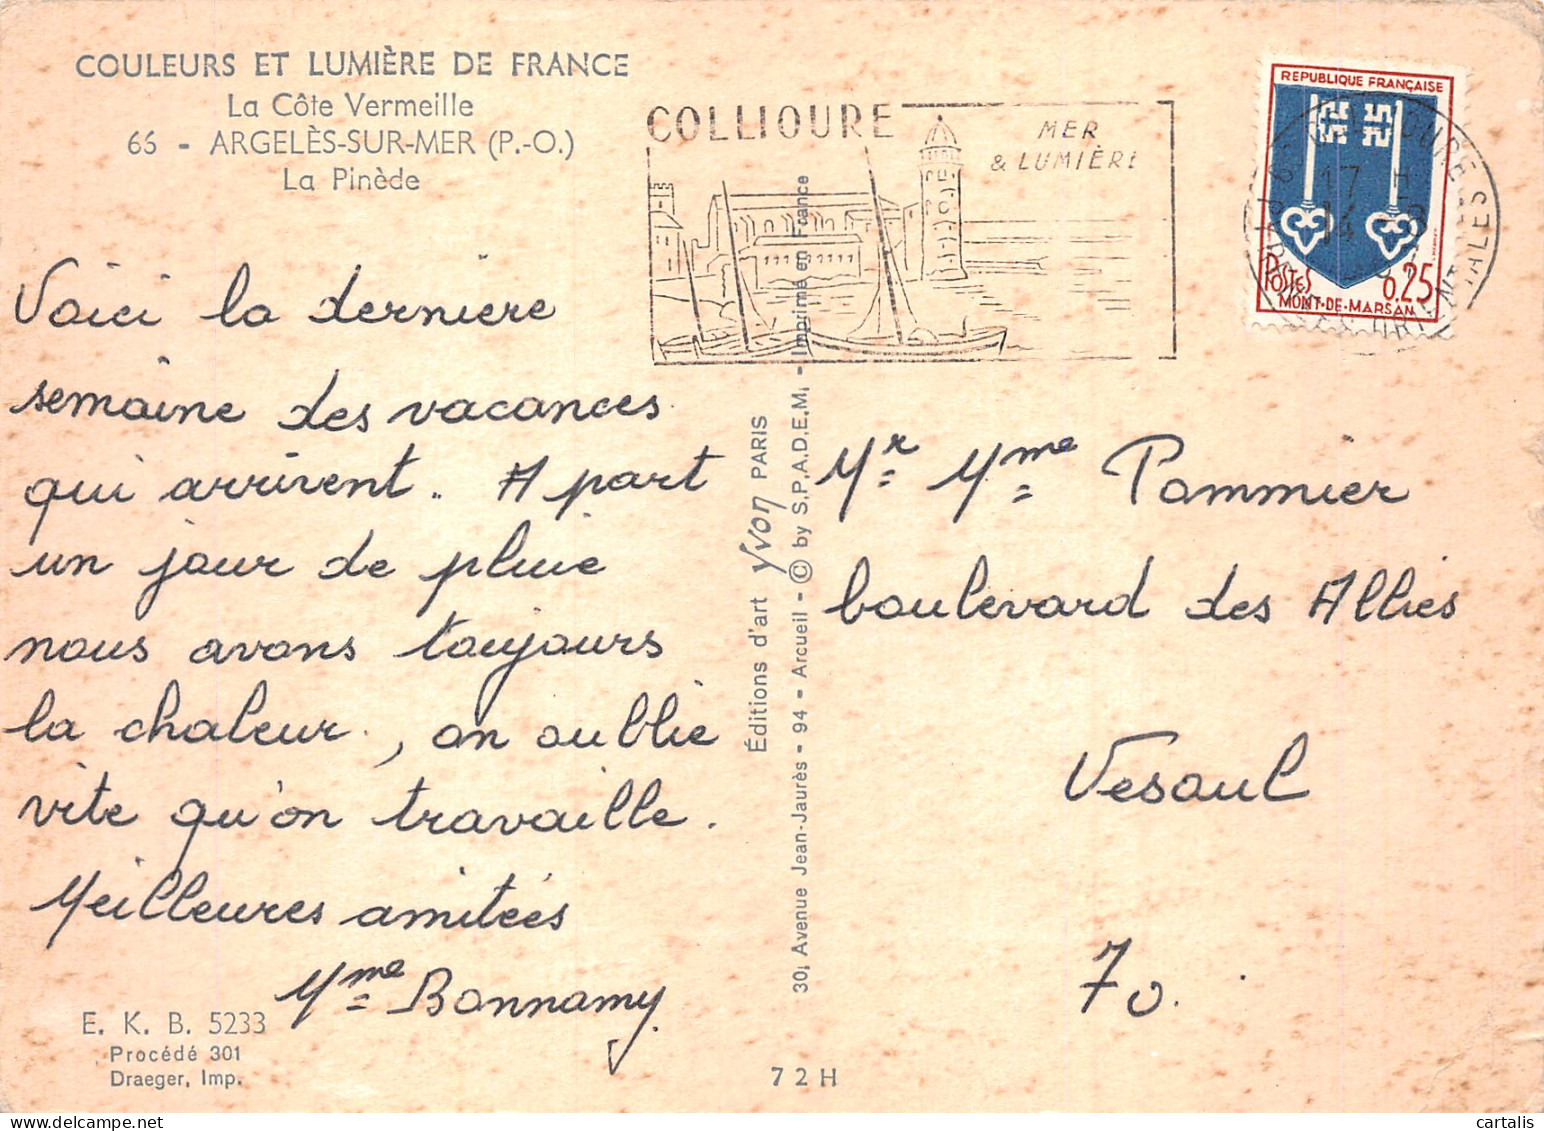 COULEURS ET LUMIÈRE DE FRANCE
La Côte Vermeille
66 - ARGELÈS-SUR-MER (P.-O.)
La Pinède
COLLIOURE
MER
& LUMIÈRE
REPUBLIQUE FRANÇAISE
17 H
14 - 8
POSTES
0.25
MONT-DE-MARSAN
Voici la derniere
semaine des vacances
qui arrivent.. A part
un jour de pluie
nous avons toujours
la chaleur, on oublie
vite qu'on travaille.
Meilleures amitiés
Mme Bonnamy.
Éditions d'art Yvon PARIS
30, Avenue Jean-Jaurès - 94 - Arcueil - © by S.P.A.D.E.M. - Imprimé en France
Mr Mme Pommier
boulevard des Alliés
Vesoul
70.
E. K. B. 5233
Procédé 301
Draeger, Imp.
72H
cartalis